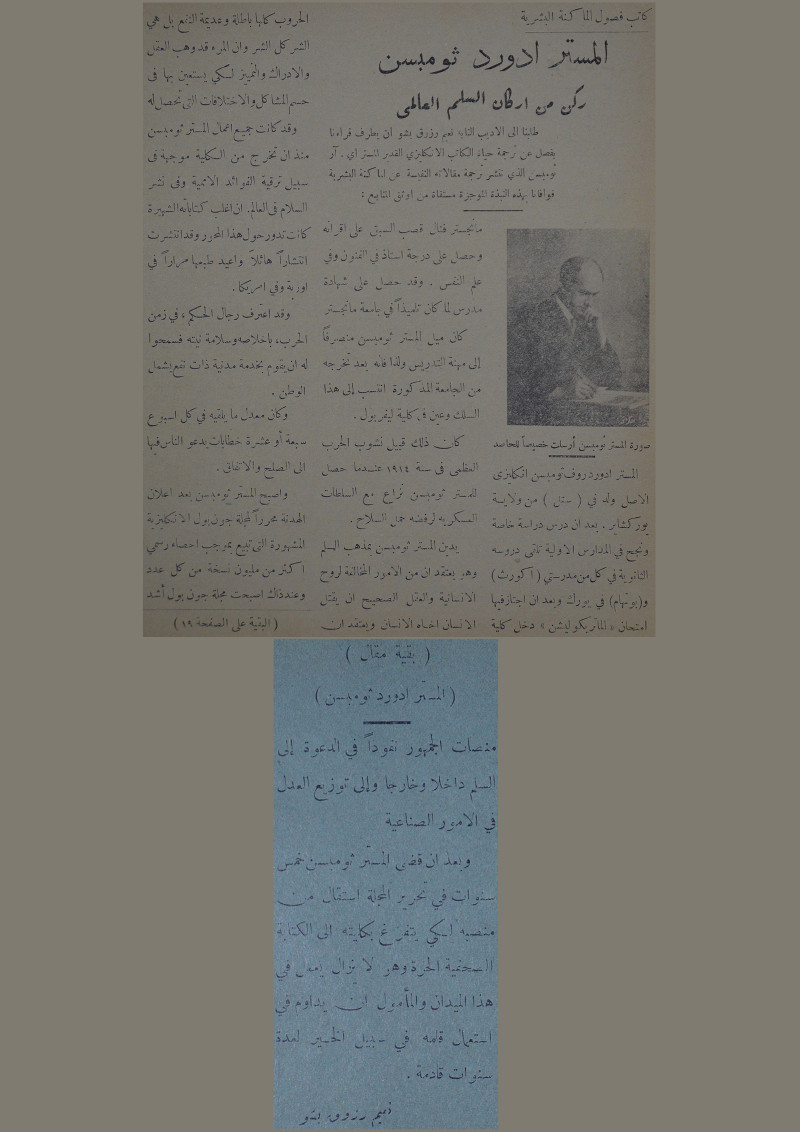 كاتب فصول الماكنة البشرية
المستر ادورد ثومبسن
ركن من اركان السلم العالمي
طلبنا الى الاديب النابه نعيم رزوق بتو ان يطرف قراءنا
بفصل عن ترجمة حياة الكاتب الانكليزي القدير المستر اي . آر
ثومبسن الذي ننشر ترجمة مقالاته النفيسة عن الماكنة البشرية
فوافانا بهذه النبذة الموجزة مستقاة من اوثق المنابع :
صورة المستر ثومبسن أرسلت خصيصاً للحاصد
المستر ادورد روف ثومبسن انكليزى
الاصل ولد في ( ستل ) من ولاية
يوركشاير . بعد ان درس دراسة خاصة
ونجح في المدارس الاولية تلقى دروسه
الثانوية في كل من مدرستي ( آكورث )
و(بوثهام) في يورك وبعد ان اجتاز فيها
امتحان « الماتريكوليشن » دخل كلية
مانجستر فنال قصب السبق على اقرانه
وحصل على درجة استاذ في الفنون وفي
علم النفس . وقد حصل على شهادة
مدرس لما كان تلميذاً في جامعة مانجستر
كان ميل المستر ثومبسن منصرفاً
إلى مهنة التدريس ولذا فانه بعد تخرجه
من الجامعة المذكورة انتسب إلى هذا
السلك وعين في كلية ليفربول .
كان ذلك قبيل نشوب الحرب
العظمى في سنة ١٩١٤ عندما حصل
للمستر ثومبسن نزاع مع السلطات
العسكريه لرفضه حمل السلاح .
يدين المستر ثومبسن بمذهب السلم
وهو يعتقد ان من الامور المخالفة لروح
الانسانية والعقل الصحيح ان يقتل
الانسان اخاه الانسان ويعتقد ان
الحروب كلها باطلة وعديمة النفع بل هي
الشر كل الشر وان المرء قد وهب العقل
والادراك والتمييز لكي يستعين بها فى
حسم المشاكل والاختلافات التى تحصل له
وقد كانت جميع اعمال المستر ثومبسن
منذ ان تخرج من الكلية موجهة فى
سبيل ترقية الفوائد الاممية وفى نشر
السلام فى العالم. ان اغلب كتاباته الشهيرة
كانت تدور حول هذا المحور وقد انتشرت
انتشاراً هائلاً واعيد طبعها مراراً في
اوربة وفي امريكا .
وقد اعترف رجال الحكم ، في زمن
الحرب، باخلاصه وسلامة نيته فسمحوا
له ان يقوم بخدمة مدنية ذات نفع يشمل
الوطن .
وكان معدل ما يلقيه في كل اسبوع
سبعة أو عشرة خطابات يدعو الناس فيها
الى الصلح والاتفاق .
واصبح المستر ثومبسن بعد اعلان
الهدنة محرراً لمجلة جون بول الانكليزية
المشهورة التى تبيع بموجب احصاء رسمي
اكثر من مليون نسخة من كل عدد
وعند ذاك اصبحت مجلة جون بول أشد
( البقية على الصفحة ١٩ )
( بقية مقال )
( المستر ادورد ثومبسن )
منصات الجمهور نفوذاً في الدعوة إلى
السلم داخلا وخارجا وإلى توزيع العدل
في الامور الصناعية
وبعد ان قضى المستر ثومبسن خمس
سنوات في تحرير المجلة استقال من
منصبه لكي يتفرغ بكليته الى الكتابة
الصحفية الحرة وهو لا يزال يعمل في
هذا الميدان والمأمول ان يداوم في
استعمال قلمه في سبيل الخير لعدة
سنوات قادمة .
نعيم رزوق بتو